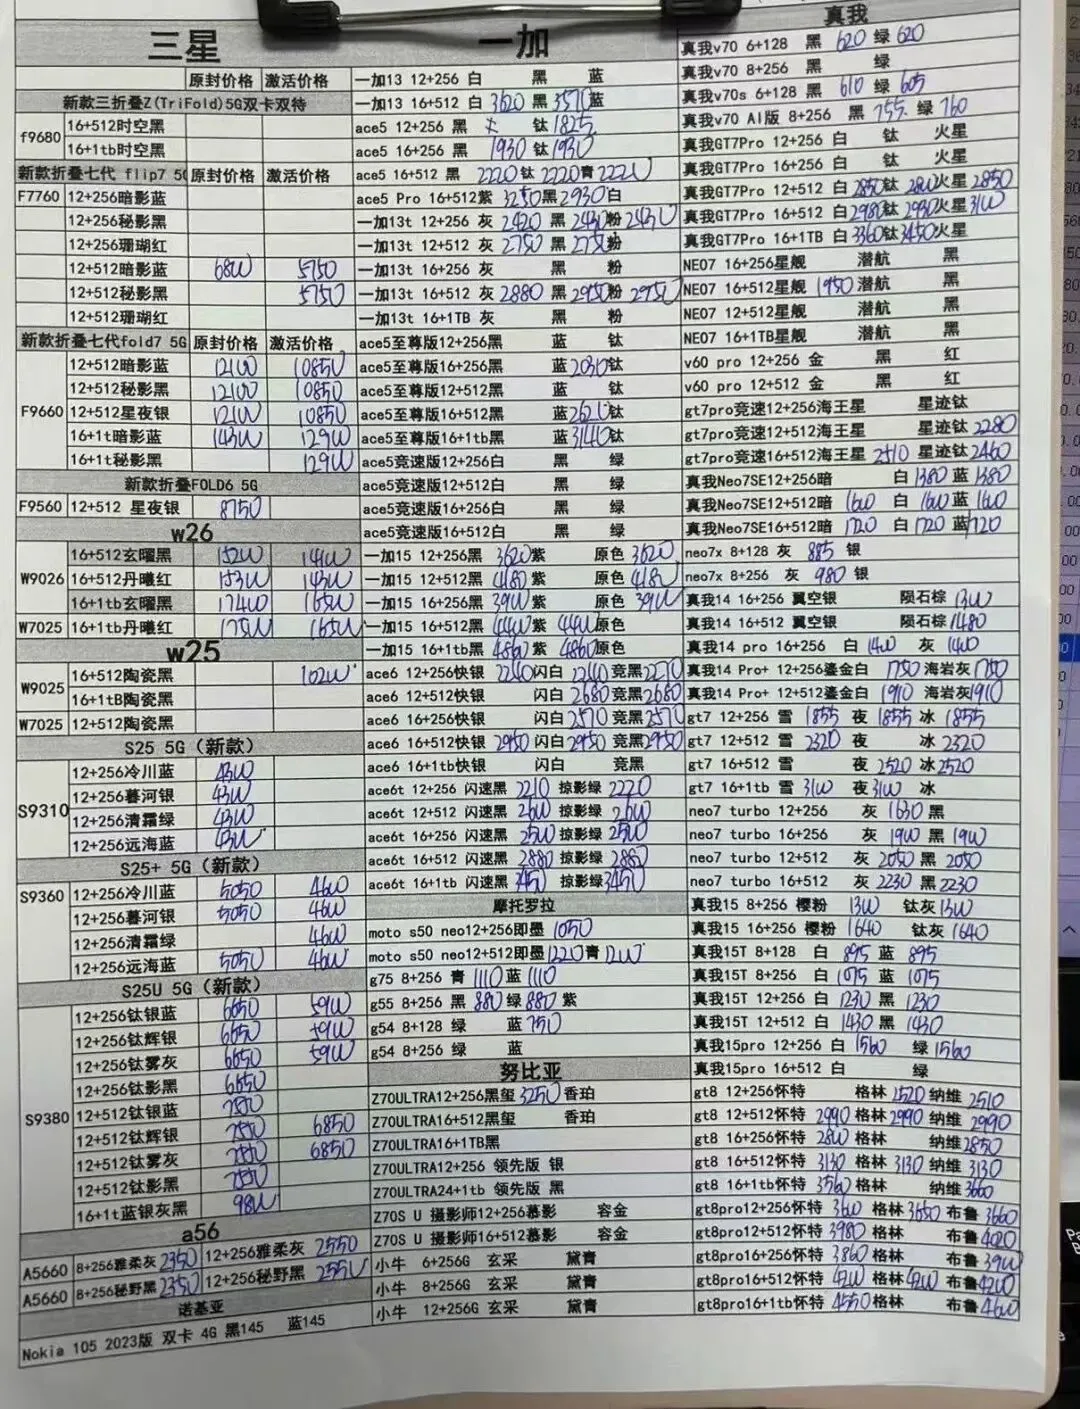 三星
原封价格 激活价格
新款三折叠Z(TriFold)5G双卡双待
f9680 16+512时空黑
16+1tb时空黑
新款折叠七代 flip7 5G 原封价格 激活价格
F7760 12+256暗影蓝
12+256秘影黑
12+256珊瑚红
12+512暗影蓝 6800 5750
12+512秘影黑 5750
12+512珊瑚红
新款折叠七代fold7 5G 原封价格 激活价格
F9660
12+512暗影蓝 12100 10850
12+512秘影黑 12100 10850
12+512星夜银 12100 10850
16+1t暗影蓝 14300 12900
16+1t秘影黑 12900
新款折叠FOLD6 5G
F9560 12+512 星夜银 8750
w26
W9026
16+512玄曜黑 15200 14100
16+512丹曦红 15300 14300
16+1tb玄曜黑 17400 16500
W7025 16+1tb丹曦红 17500 16500
w25
W9025
16+512陶瓷黑 10200
16+1tB陶瓷黑
W7025 12+512陶瓷黑
S25 5G（新款）
S9310
12+256冷川蓝 4300
12+256暮河银 4300
12+256清霜绿 4300
12+256远海蓝 4300
S25+ 5G（新款）
S9360
12+256冷川蓝 5050 4600
12+256暮河银 5050 4600
12+256清霜绿 4600
12+256远海蓝 5050 4600
S25U 5G（新款）
S9380
12+256钛银蓝 6650 5900
12+256钛辉银 6650 5900
12+256钛雾灰 6650 5900
12+256钛影黑 6650
12+512钛银蓝
12+512钛辉银 6850
12+512钛雾灰 6850
12+512钛影黑
16+1t蓝银灰黑 9800
a56
A5660 8+256雅柔灰 2350 12+256雅柔灰 2550
A5660 8+256秘野黑 2350 12+256秘野黑 2550
诺基亚
Nokia 105 2023版 双卡 4G 黑145 蓝145
一加
一加13 12+256 白 黑 蓝
一加13 16+512 白 3620 黑 3570 蓝
ace5 12+256 黑 钛 1825
ace5 16+256 黑 1930 钛 1930
ace5 16+512 黑 2220 钛 2220 青 2220
ace5 Pro 16+512紫 3250 黑 2930 白
一加13t 12+256 灰 2420 黑 2430 粉 2430
一加13t 12+512 灰 2750 黑 2750 粉
一加13t 16+256 灰 黑 粉
一加13t 16+512 灰 2880 黑 2950 粉 2950
一加13t 16+1TB 灰 黑 粉
ace5至尊版12+256黑 蓝 钛
ace5至尊版16+256黑 蓝 2030 钛
ace5至尊版12+512黑 蓝 钛
ace5至尊版16+512黑 蓝 2620 钛
ace5至尊版16+1tb黑 蓝 3140 钛
ace5竞速版12+256白 黑 绿
ace5竞速版12+512白 黑 绿
ace5竞速版16+256白 黑 绿
ace5竞速版12+512白 黑 绿
一加15 12+256黑 3620 紫 原色 3620
一加15 12+512黑 4180 紫 原色 4180
一加15 16+256黑 3900 紫 原色 3900
一加15 16+512黑 4400 紫 4400 原色
一加15 16+1tb黑 4860 紫 4860 原色
ace6 12+256快银 2240 闪白 2240 竞黑 2270
ace6 12+512快银 闪白 2680 竞黑 2680
ace6 16+256快银 闪白 2570 竞黑 2570
ace6 16+512快银 2950 闪白 2950 竞黑 2950
ace6 16+1tb快银 闪白 竞黑
ace6t 12+256 闪速黑 2210 掠影绿 2220
ace6t 12+512 闪速黑 2600 掠影绿 2600
ace6t 16+256 闪速黑 2500 掠影绿 2500
ace6t 16+512 闪速黑 2880 掠影绿 2880
ace6t 16+1tb 闪速黑 3450 掠影绿 3450
摩托罗拉
moto s50 neo12+256即墨 1050
moto s50 neo12+512即墨 1220 青 1200
g75 8+256 青 1110 蓝 1110
g55 8+256 黑 880 绿 880 紫
g54 8+128 绿 蓝 750
g54 8+256 绿 蓝
努比亚
Z70ULTRA12+256黑玺 3250 香珀
Z70ULTRA16+512黑玺 香珀
Z70ULTRA16+1TB黑
Z70ULTRA12+256 领先版 银
Z70ULTRA24+1tb 领先版 黑
Z70S U 摄影师12+256慕影 容金
Z70S U 摄影师16+512慕影 容金
小牛 6+256G 玄采 黛青
小牛 8+256G 玄采 黛青
小牛 12+256G 玄采 黛青
真我
真我v70 6+128 黑 620 绿 620
真我v70 8+256 黑 绿
真我v70s 6+128 黑 610 绿 605
真我v70 AI版 8+256 黑 755 绿 760
真我GT7Pro 12+256 白 钛 火星
真我GT7Pro 16+256 白 钛 火星
真我GT7Pro 12+512 白 2850 钛 2800 火星 2850
真我GT7Pro 16+512 白 2980 钛 2930 火星 3100
真我GT7Pro 16+1TB 白 3360 钛 3450 火星
NEO7 16+256星舰 潜航 黑
NEO7 16+512星舰 1950 潜航 黑
NEO7 12+512星舰 潜航 黑
NEO7 16+1TB星舰 潜航 黑
v60 pro 12+256 金 黑 红
v60 pro 12+512 金 黑 红
gt7pro竞速12+256海王星 星迹钛
gt7pro竞速12+512海王星 星迹钛 2280
gt7pro竞速16+512海王星 2510 星迹钛 2460
真我Neo7SE12+256暗 白 1380 蓝 1380
真我Neo7SE12+512暗 1600 白 1600 蓝 1600
真我Neo7SE16+512暗 1720 白 1720 蓝 1720
neo7x 8+128 灰 885 银
neo7x 8+256 灰 980 银
真我14 16+256 翼空银 陨石棕 1300
真我14 16+512 翼空银 陨石棕 1480
真我14 pro 16+256 白 1400 灰 1400
真我14 Pro+ 12+256鎏金白 1750 海岩灰 1750
真我14 Pro+ 12+512鎏金白 1910 海岩灰 1910
gt7 12+256 雪 1855 夜 1855 冰 1855
gt7 12+512 雪 2320 夜 冰 2320
gt7 16+512 雪 夜 2520 冰 2520
gt7 16+1tb 雪 3100 夜 3100 冰
neo7 turbo 12+256 灰 1630 黑
neo7 turbo 16+256 灰 1900 黑 1900
neo7 turbo 12+512 灰 2050 黑 2050
neo7 turbo 16+512 灰 2230 黑 2230
真我15 8+256 樱粉 1300 钛灰 1300
真我15 16+256 樱粉 1640 钛灰 1640
真我15T 8+128 白 895 蓝 895
真我15T 8+256 白 1075 蓝 1075
真我15T 12+256 白 1230 黑 1230
真我15T 12+512 白 1430 黑 1430
真我15pro 12+256 白 1560 绿 1560
真我15pro 16+512 白 绿
gt8 12+256怀特 格林 2520 纳维 2510
gt8 12+512怀特 2990 格林 2990 纳维 2990
gt8 16+256怀特 2800 格林 纳维 2850
gt8 16+512怀特 3130 格林 3130 纳维 3130
gt8 16+1tb怀特 3560 格林 纳维 3660
gt8pro12+256怀特 3600 格林 3650 布鲁 3660
gt8pro12+512怀特 3980 格林 布鲁 4020
gt8pro16+256怀特 3860 格林 布鲁 3900
gt8pro16+512怀特 4200 格林 4200 布鲁 4200
gt8pro16+1tb怀特 4550 格林 布鲁 4600